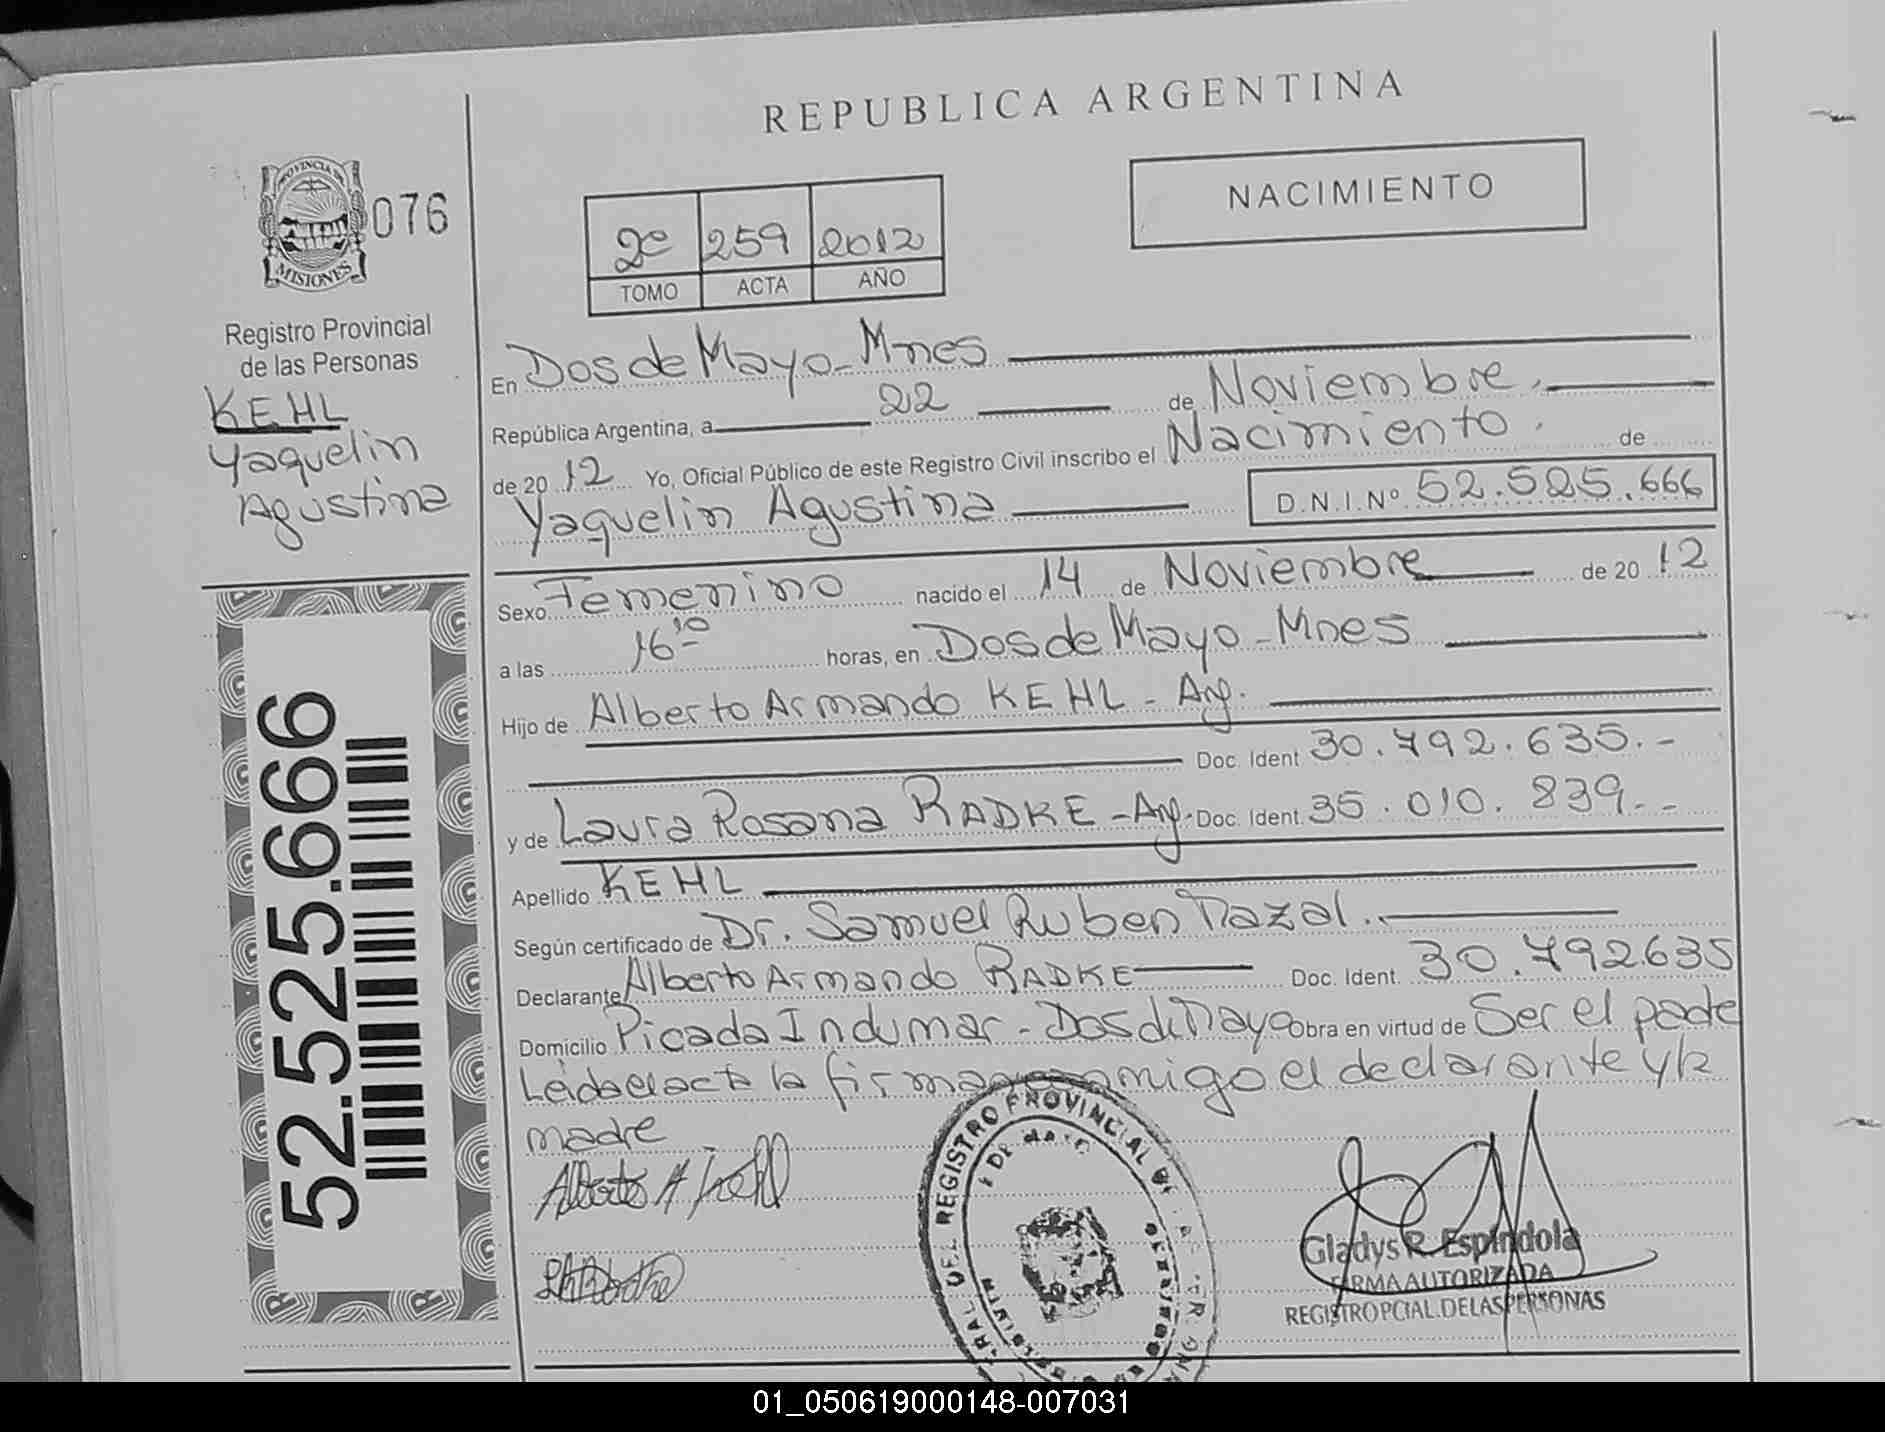 REPUBLICA ARGENTINA
NACIMIENTO
PROVINCIA DE
MISIONES
076
2º 259 2012
TOMO ACTA AÑO
Registro Provincial
de las Personas
KEHL
Yaquelin
Agustina
52.525.666
En Dos de Mayo - Mnes
República Argentina, a 22 de Noviembre.
de 2012 Yo, Oficial Público de este Registro Civil inscribo el Nacimiento. de
Yaquelin Agustina D.N.I.Nº 52.525.666
Sexo Femenino nacido el 14 de Noviembre de 2012
a las 16 10 horas, en Dos de Mayo - Mnes
Hijo de Alberto Armando KEHL - Arg.
Doc. Ident 30.792.635.-
y de Laura Rosana RADKE - Arg. Doc. Ident. 35.010.839.-
Apellido KEHL
Según certificado de Dr. Samuel Ruben Nazal.
Declarante Alberto Armando RADKE Doc. Ident. 30.792635
Domicilio Picada Indumar - Dos de Mayo Obra en virtud de Ser el padre
Leida el acta la firman conmigo el declarante y la
madre
Alberto A Kehl
REGISTRO PROVINCIAL DE
Gladys R. Espindola
FIRMA AUTORIZADA
REGISTRO PCIAL. DE LAS PERSONAS
01_050619000148-007031